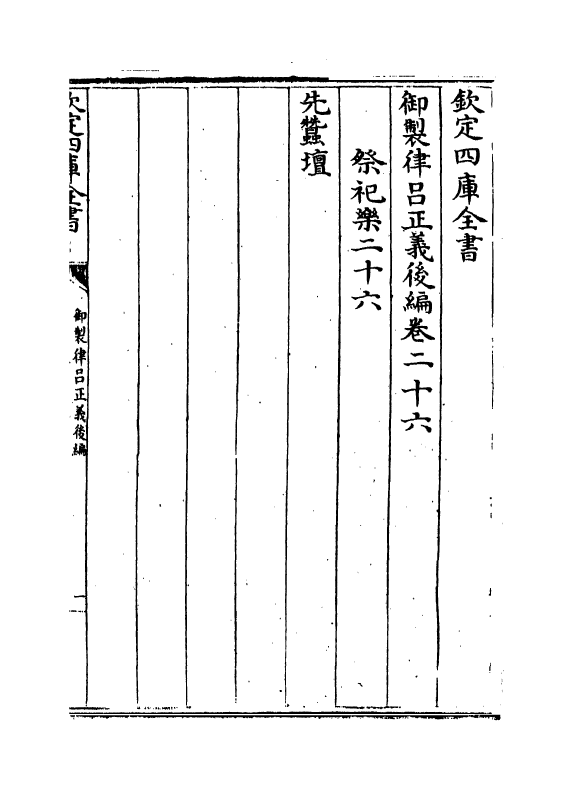 欽定四庫全書
御製律呂正義後編卷二十六
祭祀樂二十六
先蠶壇
欽定四庫全書
御製律呂正義後編
一